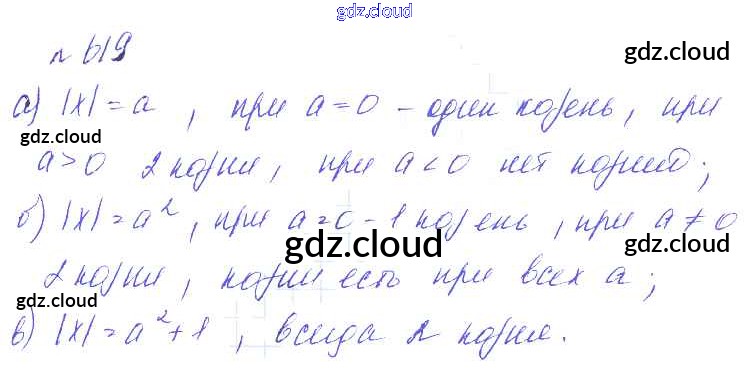 gdz.cloud
№ 619
gdz.cloud
а) |x| = a , при a = 0 – один корень, при
gdz.cloud
a > 0 2 корни, при a < 0 нет корней;
gdz.cloud
б) |x| = a², при a = 0 – 1 корень, при a ≠ 0
gdz.cloud gdz.cloud
2 корни, корни есть при всех a;
gdz.cloud
в) |x| = a² + 1 , всегда 2 корни.
gdz.cloud gdz.cloud